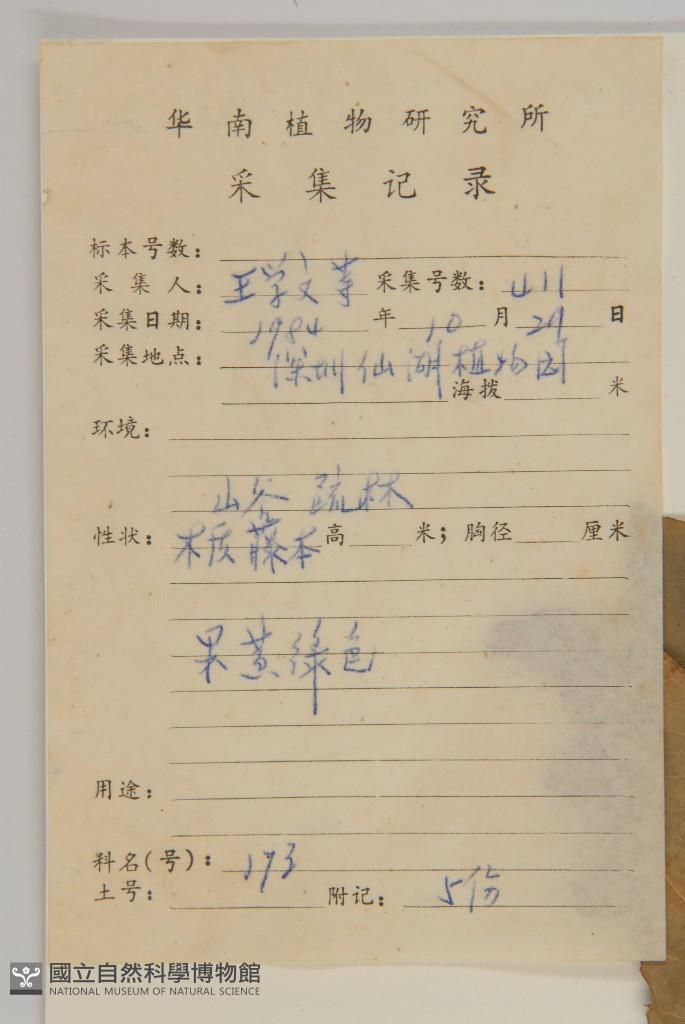 华南植物研究所
采集记录
标本号数：
采集人：王学文等 采集号数：411
采集日期：1984年10月29日
采集地点：深圳仙湖植物园
海拨 米
环境：
山谷疏林
性状：木质藤本 高 米；胸径 厘米
果黄绿色
用途：
科名(号)：173
土号： 附记：5份
國立自然科學博物館
NATIONAL MUSEUM OF NATURAL SCIENCE